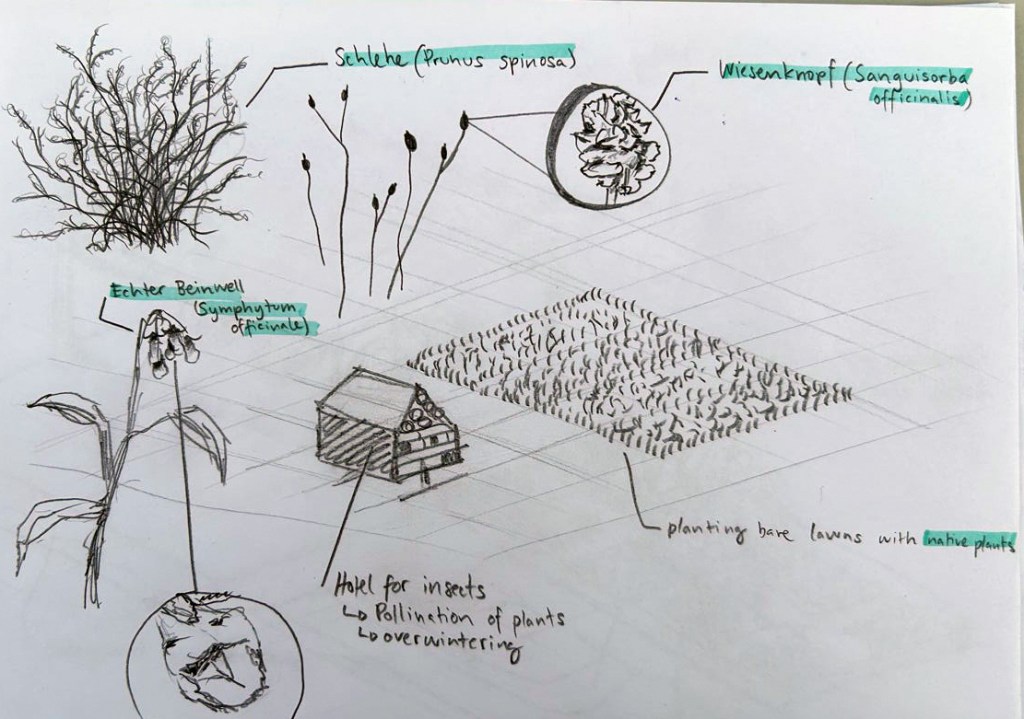 Schlehe (Prunus spinosa)
Wiesenknopf (Sanguisorba
officinalis)
Echter Beinwell
(Symphytum
officinale)
planting bare lawns with native plants
Hotel for insects
↳ Pollination of plants
↳ overwintering